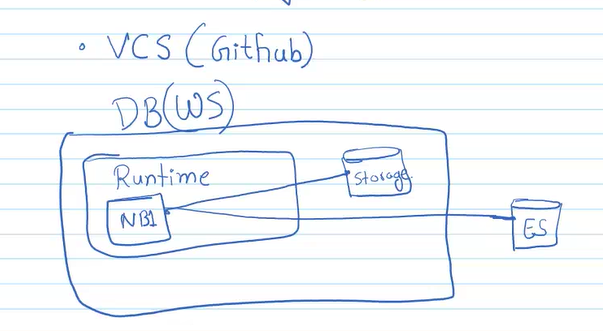 • VCS (Github)
DB(WS)
Runtime
Storage
NB1
ES